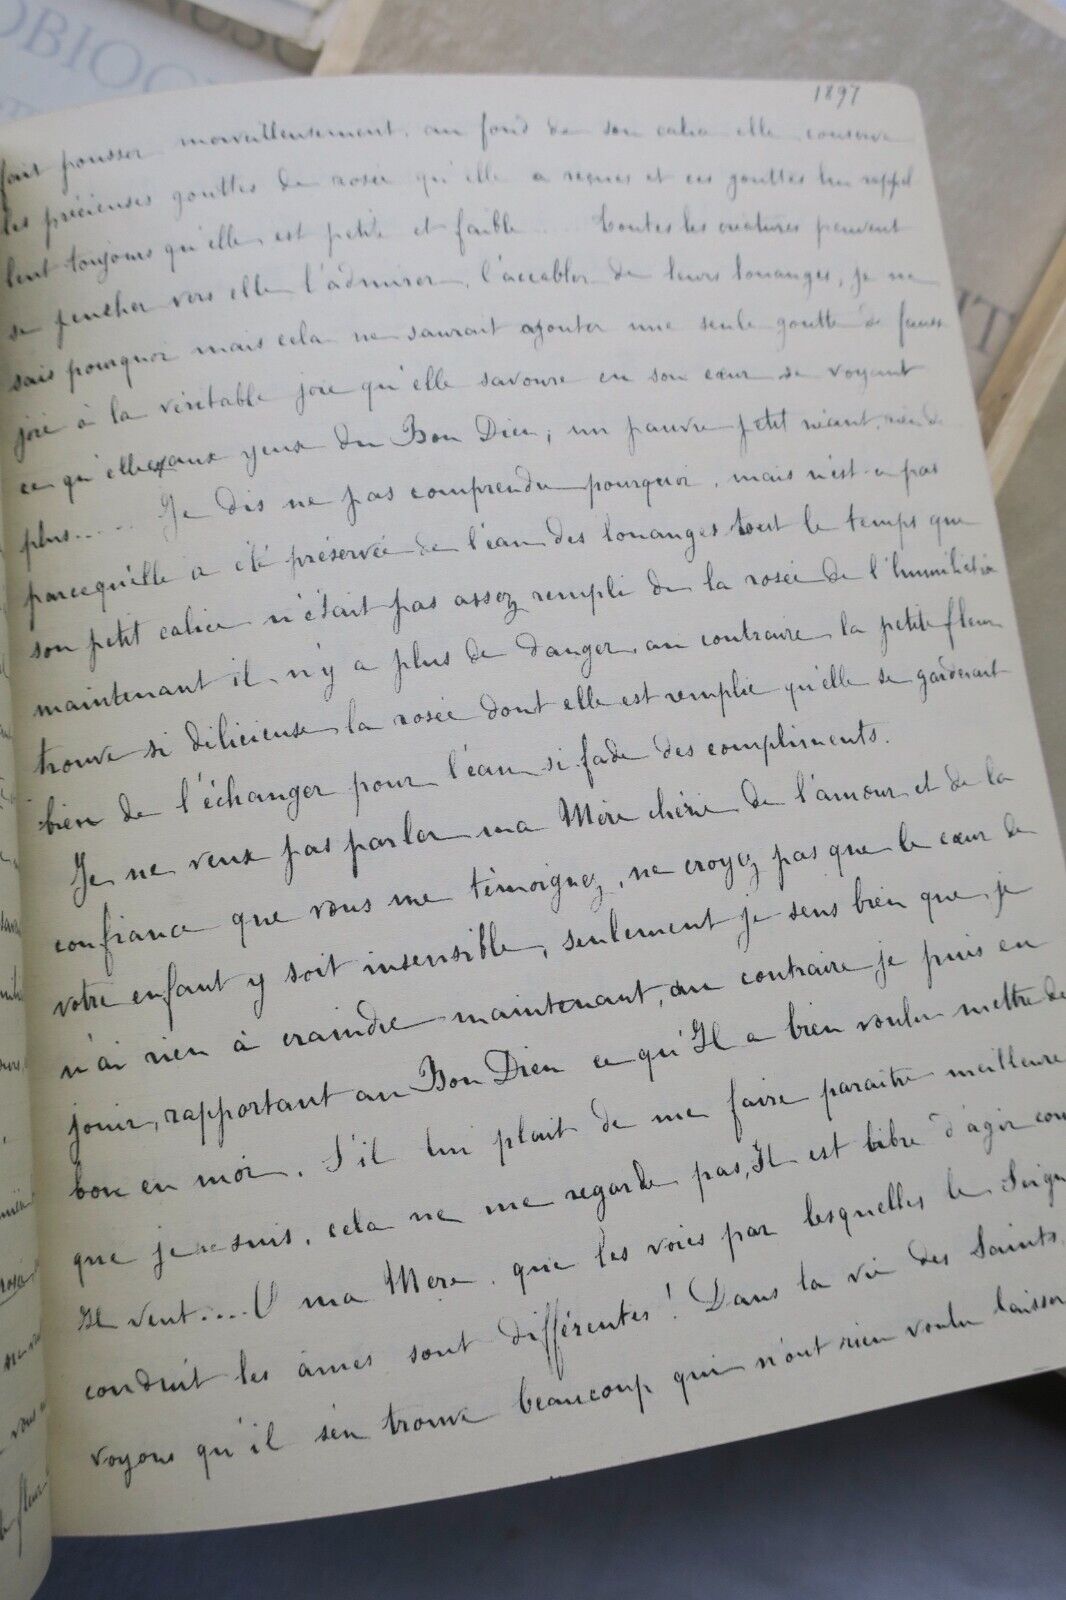 OBIOG
1897
fait pousser merveilleusement, au fond de son calice elle conserve
les précieuses gouttes de rosée qu'elle a reçues et ces gouttes lui rappel
lent toujours qu'elle est petite et faible.... Toutes les créatures peuvent
se pencher vers elle l'admirer, l'accabler de leurs louanges, je ne
sais pourquoi mais cela ne saurait ajouter une seule goutte de fausse
joie à la véritable joie qu'elle savoure en son cœur se voyant
ce qu'elle est aux yeux du Bon Dieu, un pauvre petit néant, rien de
plus..... Je dis ne pas comprendre pourquoi, mais n'est-ce pas
parcequ'elle a été préservée de l'eau des louanges tout le temps que
son petit calice n'était pas assez rempli de la rosée de l'humiliation
maintenant il n'y a plus de danger, au contraire la petite fleur
trouve si délicieuse la rosée dont elle est remplie qu'elle se garderait
bien de l'échanger pour l'eau si fade des compliments.
Je ne veux pas parler ma Mère chérie de l'amour et de la
confiance que vous me témoignez, ne croyez pas que le cœur de
votre enfant y soit insensible, seulement je sens bien que je
n'ai rien à craindre maintenant, au contraire je puis en
jouir, rapportant au Bon Dieu ce qu'Il a bien voulu mettre de
bon en moi. S'il lui plait de me faire paraître meilleure
que je ne suis, cela ne me regarde pas, Il est libre d'agir com
Il veut.... O ma Mère, que les voies par lesquelles le Seign
conduit les âmes sont différentes! Dans la vie des Saints,
voyons qu'il s'en trouve beaucoup qui n'ont rien voulu laisser